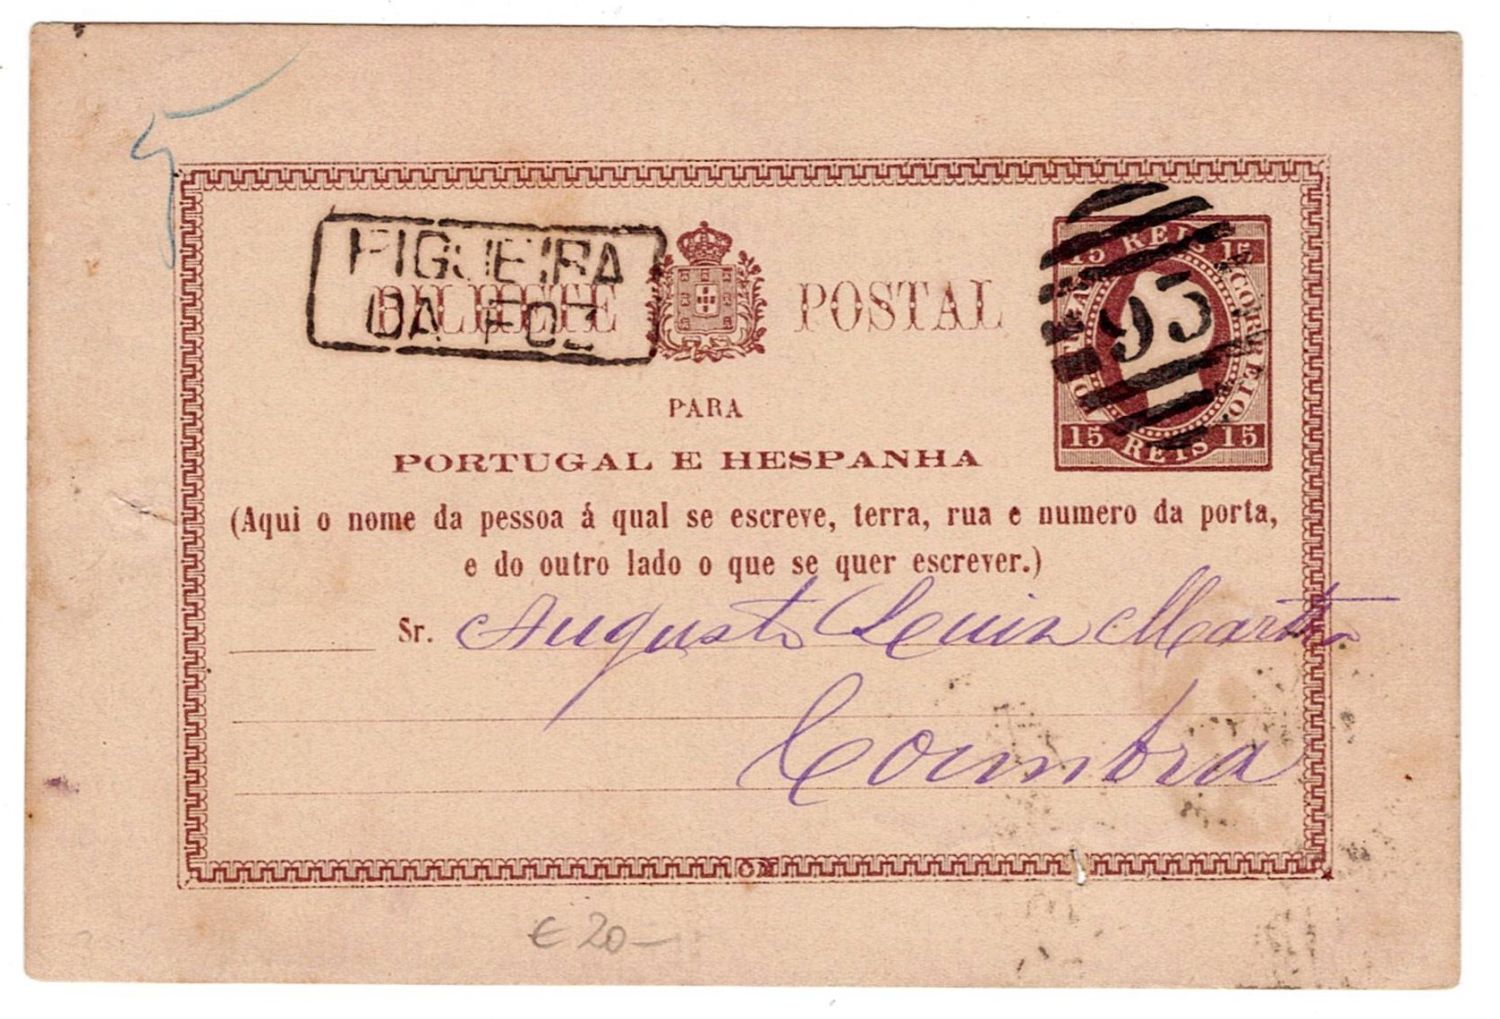 5
FIGUEIRA
DA FOZ
BILHETE POSTAL
15 REIS 15
CORREIO
95
15 REIS 15
PARA
PORTUGAL E HESPANHA
(Aqui o nome da pessoa á qual se escreve, terra, rua e numero da porta,
e do outro lado o que se quer escrever.)
Sr. Augusto Luiz Martins
Coimbra
€ 20-